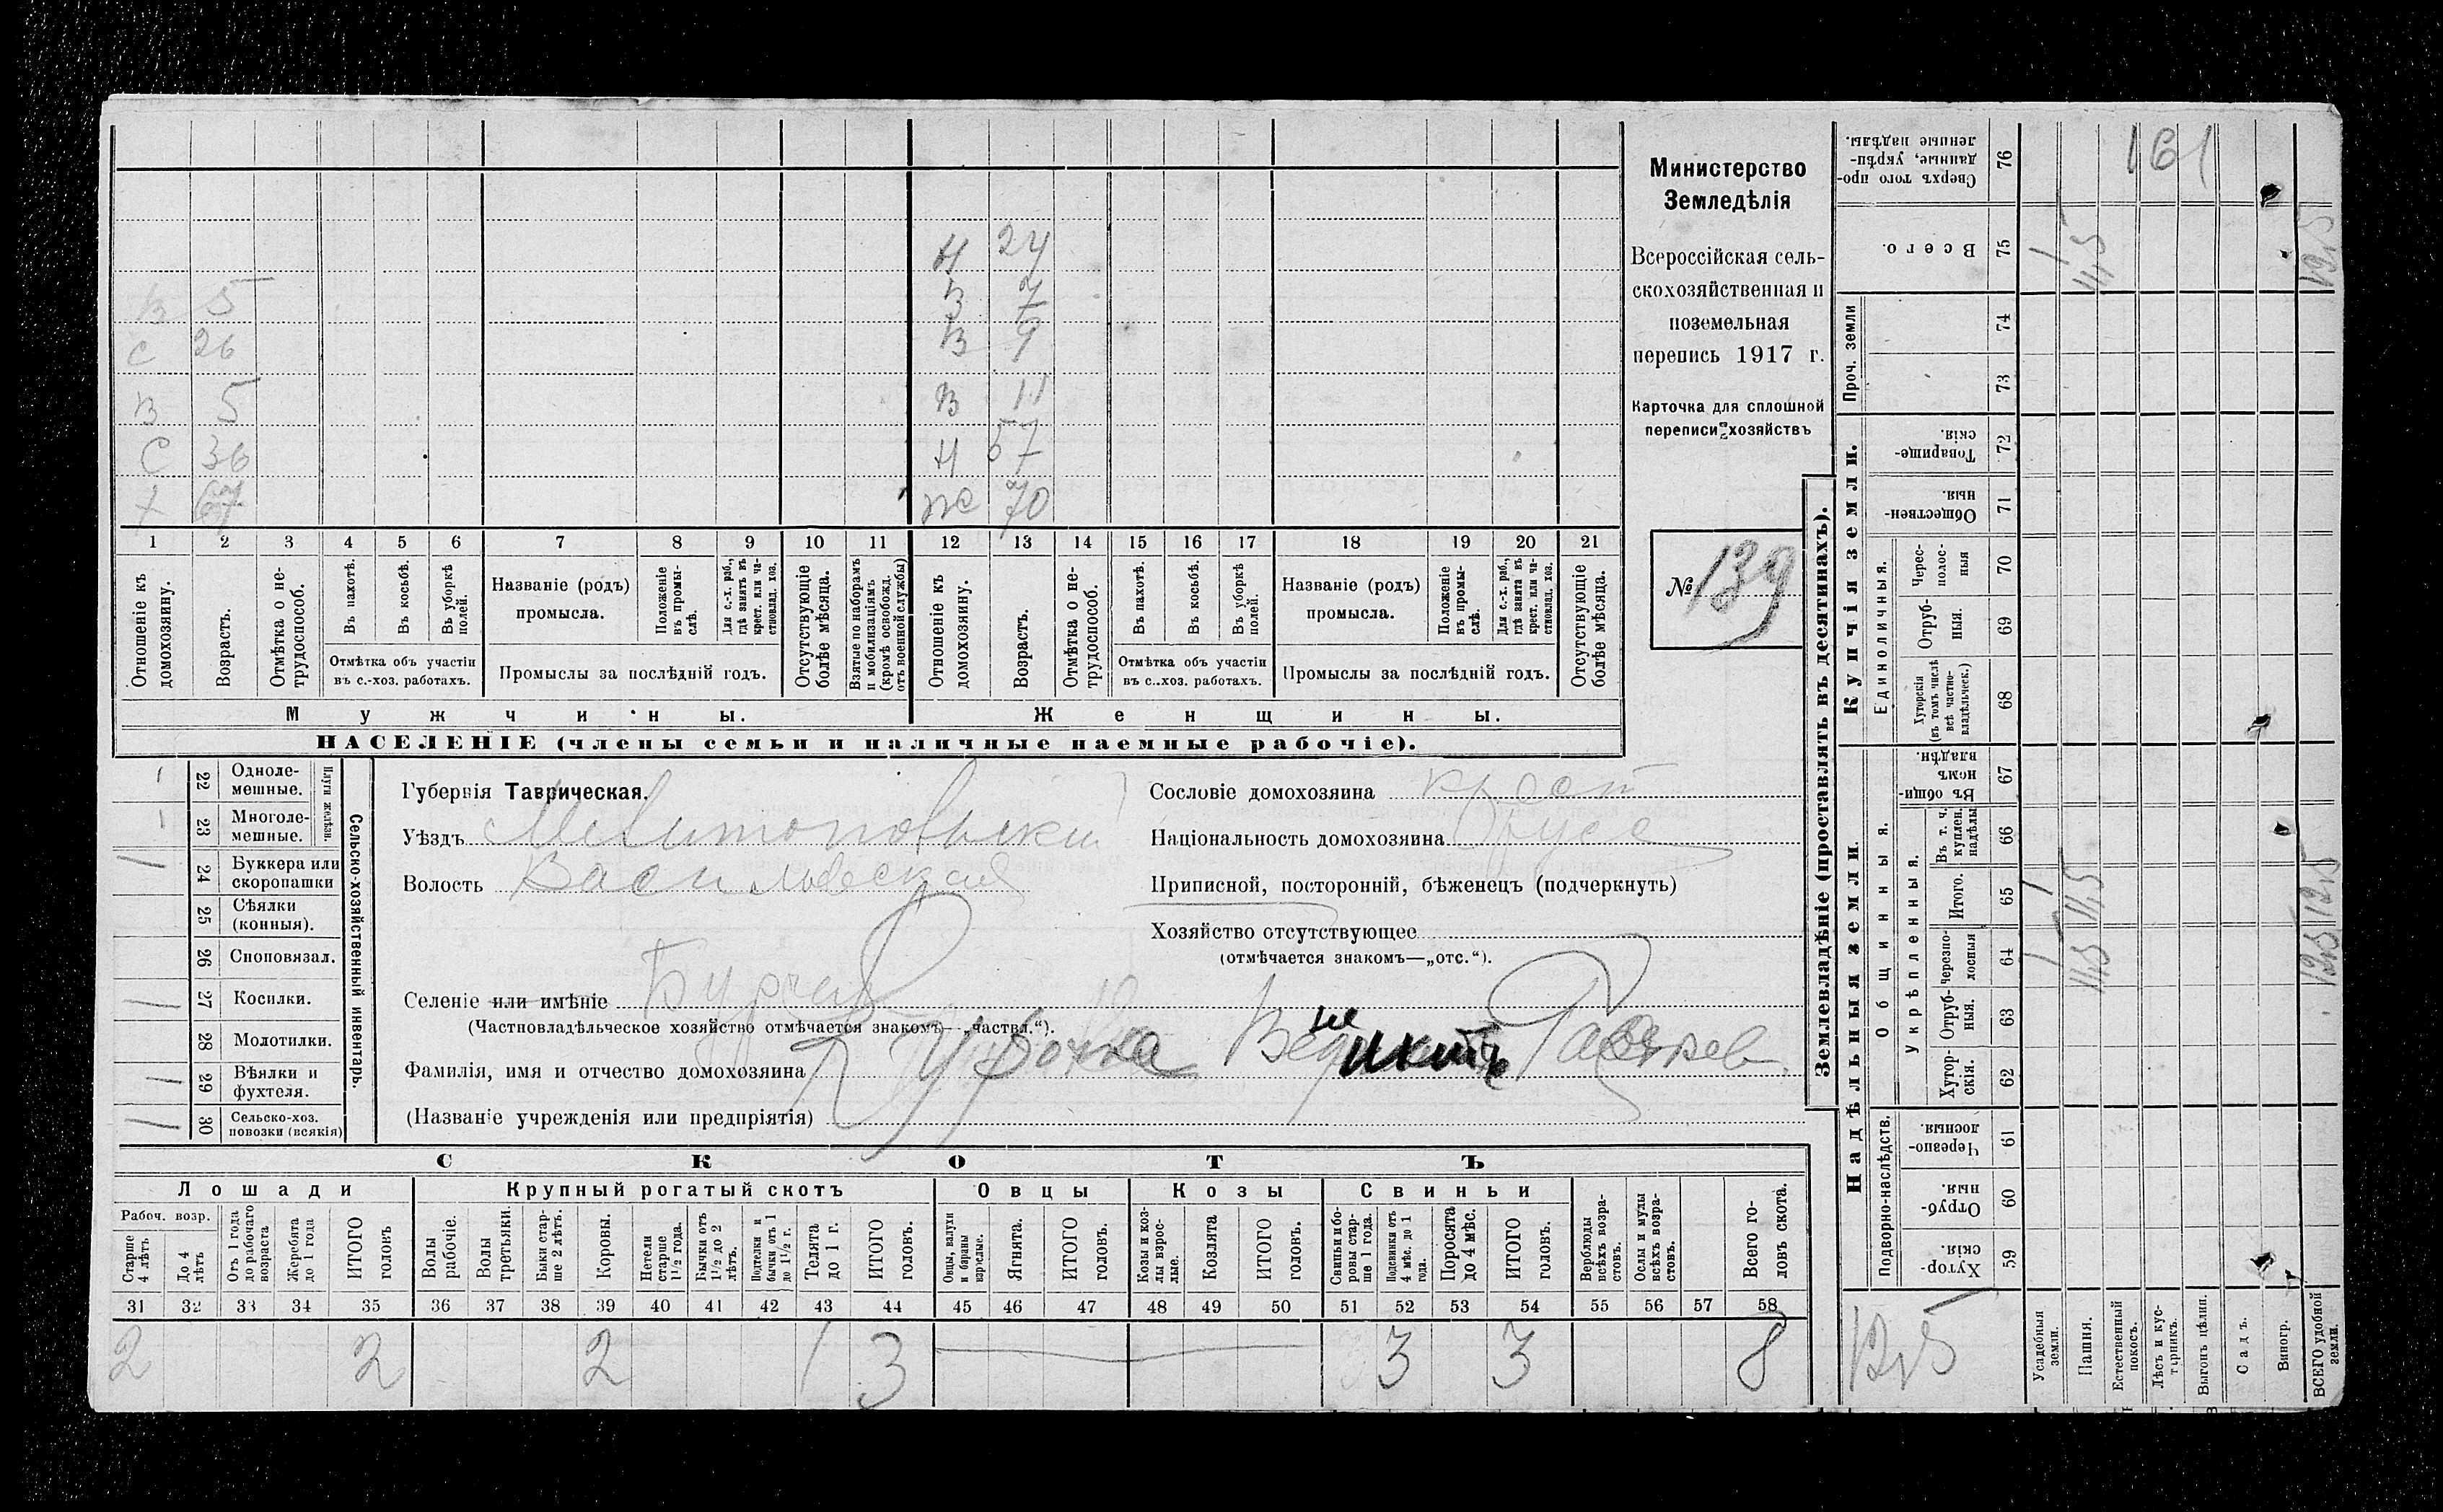 Министерство
Земледѣлія
Всероссійская сель-
скохозяйственная и
поземельная
перепись 1917 г.
Карточка для сплошной
переписи хозяйствъ
№ 139
Н 24
В 5 В 7
С 26 В 9
В 5 В 11
С 36 Н 57
Х 67 ж 70
1 2 3 4 5 6 7 8 9 10 11 12 13 14 15 16 17 18 19 20 21
Отношеніе къ домохозяину.
Возрастъ.
Отмѣтка о не-трудоспособ.
Въ пахотѣ.
Въ косьбѣ.
Въ уборкѣ полей.
Отмѣтка объ участіи
въ с.-хоз. работахъ.
Названіе (родъ)
промысла.
Положеніе въ промы-слѣ.
Для с.-х. раб., гдѣ занятъ въ крест. или ча-стновлад. хоз.
Промыслы за послѣдній годъ.
Отсутствующіе болѣе мѣсяца.
Взятые по наборамъ и мобилизаціямъ (кромѣ освобожд. отъ военной службы)
Отношеніе къ домохозяину.
Возрастъ.
Отмѣтка о не-трудоспособ.
Въ пахотѣ.
Въ косьбѣ.
Въ уборкѣ полей.
Отмѣтка объ участіи
въ с..хоз. работахъ.
Названіе (родъ)
промысла.
Положеніе въ промы-слѣ.
Для с.-х. раб., гдѣ занята въ крест. или ча-стновлад. хоз.
Промыслы за послѣдній годъ.
Отсутствующіе болѣе мѣсяца.
Мужчины. Женщины.
НАСЕЛЕНІЕ (члены семьи и наличные наемные рабочіе).
Сельско-хозяйственный инвентарь.
Плуги желѣзн.
22 Одноле-мешные.
23 Многоле-мешные.
24 Буккера или скоропашки
25 Сѣялки (конныя).
26 Сноповязал.
27 Косилки.
28 Молотилки.
29 Вѣялки и фухтеля.
30 Сельско-хоз. повозки (всякія)
Губернія Таврическая.
Уѣздъ Мелитопольскій
Волость Васильевская
Селеніе или имѣніе
(Частновладѣльческое хозяйство отмѣчается знакомъ—„частвл.“).
Фамилія, имя и отчество домохозяина
(Названіе учрежденія или предпріятія)
Сословіе домохозяина крест
Національность домохозяина
Приписной, посторонній, бѣженецъ (подчеркнуть)
Хозяйство отсутствующее
(отмѣчается знакомъ—„отс.“).
СКОТЪ
Лошади Крупный рогатый скотъ Овцы Козы Свиньи
Рабоч. возр.
Старше 4 лѣтъ
До 4 лѣтъ
Отъ 1 года до рабочаго возраста
Жеребята до 1 года
ИТОГО головъ
Волы рабочіе.
Волы третьяки.
Быки стар-ше 2 лѣтъ.
Коровы.
Нетели старше 1½ года.
Бычки отъ 1½ до 2 лѣтъ.
Подтелки и бычки отъ 1 до 1½ г.
Телята до 1 г.
ИТОГО головъ.
Овцы, валухи и бараны взрослые.
Ягнята.
ИТОГО головъ.
Козы и коз-лы взрос-лые.
Козлята
ИТОГО головъ.
Свиньи и бо-ровы стар-ше 1 года.
Подсвинки отъ 4 мѣс. до 1 года.
Поросята до 4 мѣс.
ИТОГО головъ.
Верблюды всѣхъ возра-стовъ.
Ослы и мулы всѣхъ возра-стовъ.
Всего го-ловъ скота.
31 32 33 34 35 36 37 38 39 40 41 42 43 44 45 46 47 48 49 50 51 52 53 54 55 56 57 58
2 2 2 1 3 3 3 8
Землевладѣніе (проставлять въ десятинахъ).
Надѣльныя земли.
Купчія земли.
Проч. земли
Подворно-наслѣдств.
Общинныя.
Укрѣпленныя.
Единоличныя.
Хутор-скія. 59
Отруб-ныя. 60
Черезпо-лосныя 61
Хутор-скія. 62
Отруб-ныя. 63
Черезпо-лосныя 64
Итого. 65
Въ т. ч. куплен. надѣлы 66
Въ общи-номъ владѣн. 67
Хуторскія (въ томъ числѣ всѣ частно-владѣльческ.) 68
Отруб-ныя. 69
Черес-полос-ныя 70
Обществен-ныя. 71
Товарище-скія. 72
73
74
Всего. 75
Сверхъ того про-данные, укрѣп-ленные надѣлы. 76
Усадебныя земли.
Пашня.
Естественный покосъ.
Лѣсъ и кус-тарникъ.
Выгонъ цѣлин.
Садъ.
Виногр.
ВСЕГО удобной земли.
12,5
1 11,5 12,5
1 11,5 12,5
1 11,5 12,5
161